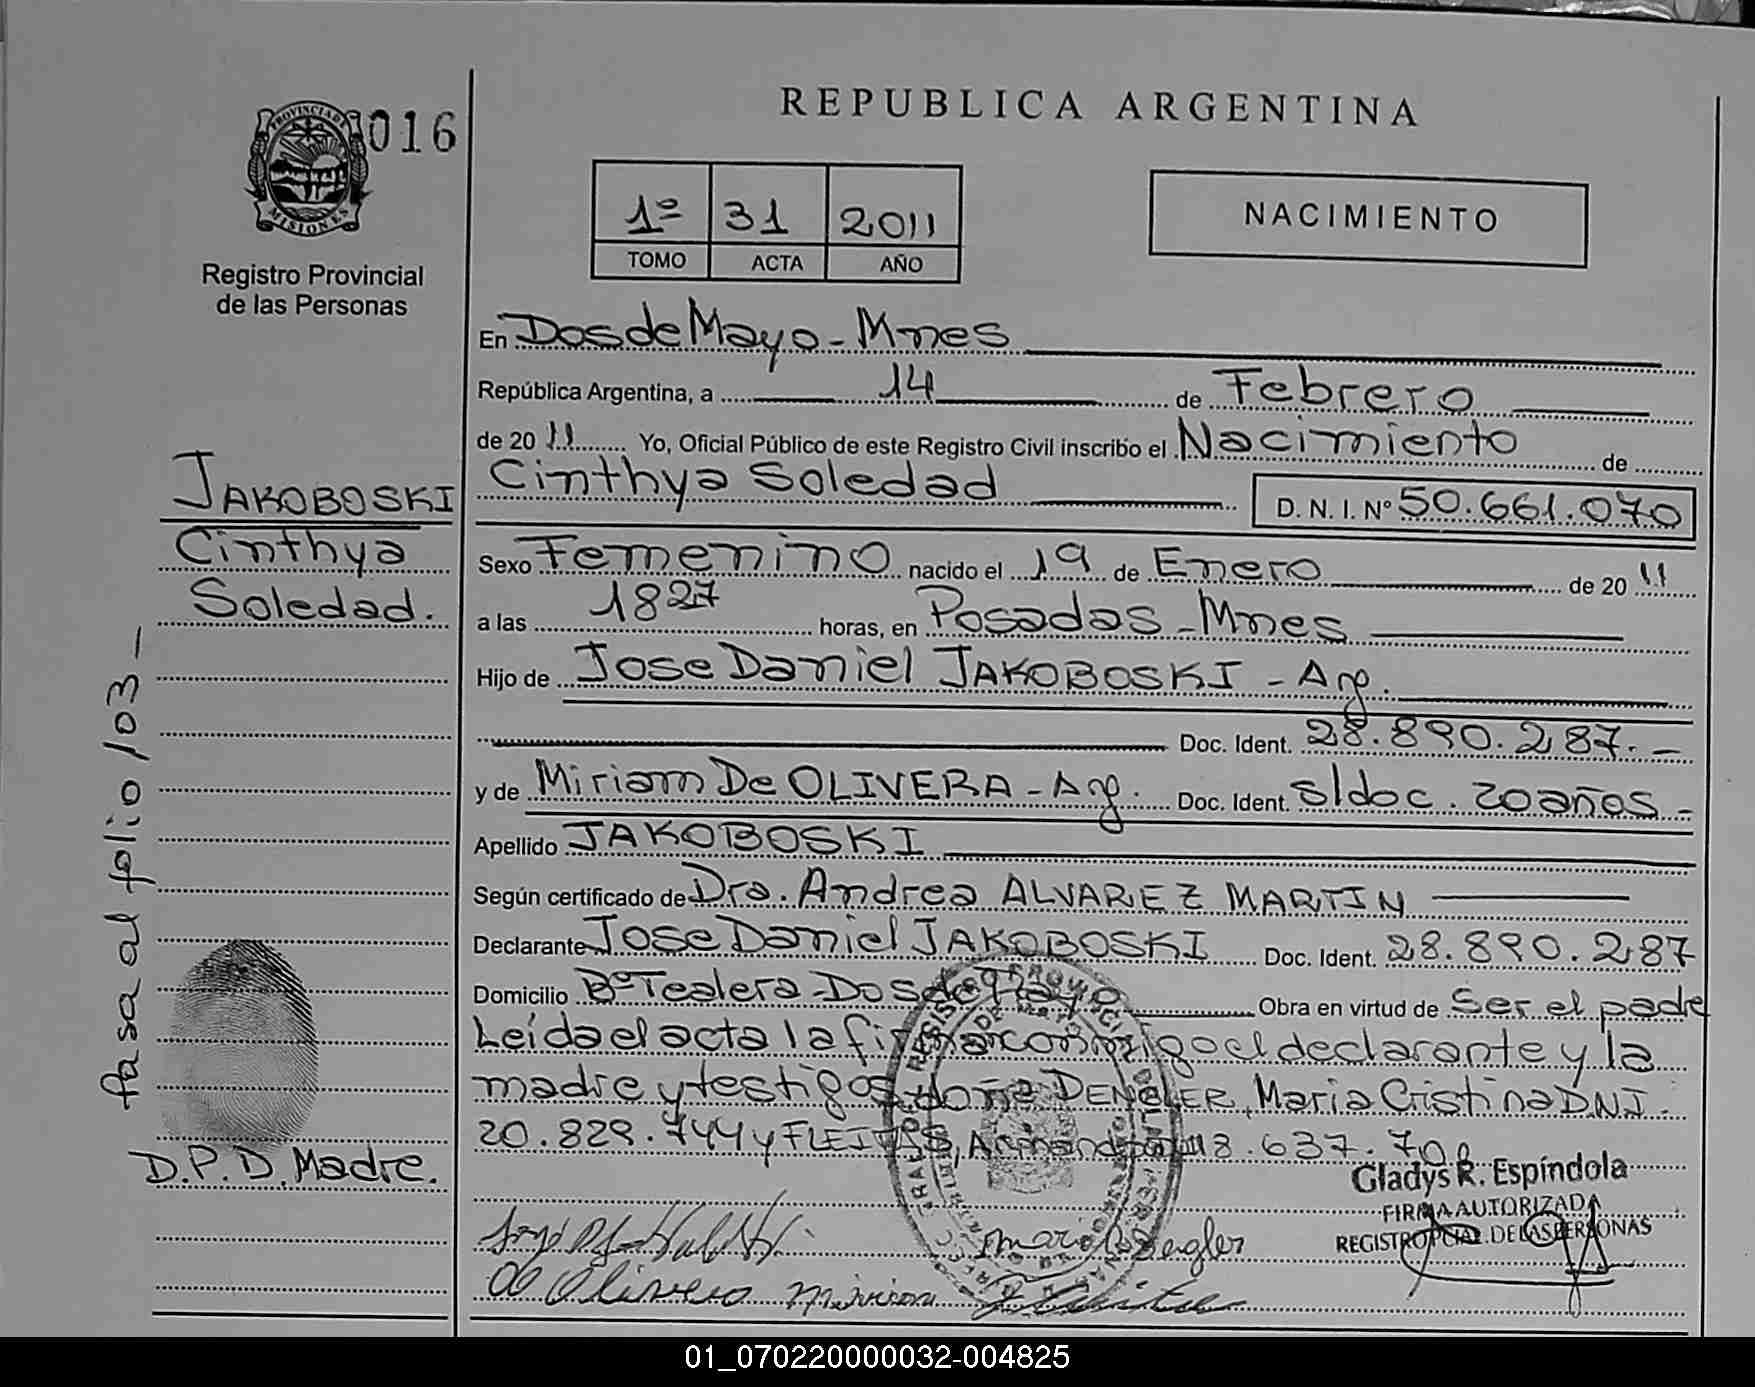 REPUBLICA ARGENTINA
PROVINCIA DE
MISIONES
016
Registro Provincial
de las Personas
1º 31 2011
TOMO ACTA AÑO
NACIMIENTO
En Dos de Mayo - Mnes
República Argentina, a 14 de Febrero
de 20 11 Yo, Oficial Público de este Registro Civil inscribo el Nacimiento de
Cinthya Soledad D. N. I. Nº 50.661.070
Sexo Femenino nacido el 19 de Enero de 20 11
a las 1827 horas, en Posadas - Mnes
Hijo de Jose Daniel JAKOBOSKI - Arg.
Doc. Ident. 28.890.287. -
y de Miriam De OLIVERA - Arg. Doc. Ident. s/doc. 20 años -
Apellido JAKOBOSKI
Según certificado de Dra. Andrea ALVAREZ MARTIN
Declarante Jose Daniel JAKOBOSKI Doc. Ident. 28.890.287
Domicilio Bº Tealera - Dos de Mayo Obra en virtud de Ser el padre
Leída el acta la firmar conmigo el declarante y la
madre y testigos DENGLER, Maria Cristina D.N.I.
20.829.744 y FLEITAS, 18.637.70
JAKOBOSKI
Cinthya
Soledad.
Pasa al folio 103 -
D.P.D. Madre.
Gladys R. Espíndola
FIRMA AUTORIZADA
REGISTRO PCIAL. DE LAS PERSONAS
Maria Dengler
de Olivera Miriam
01_070220000032-004825